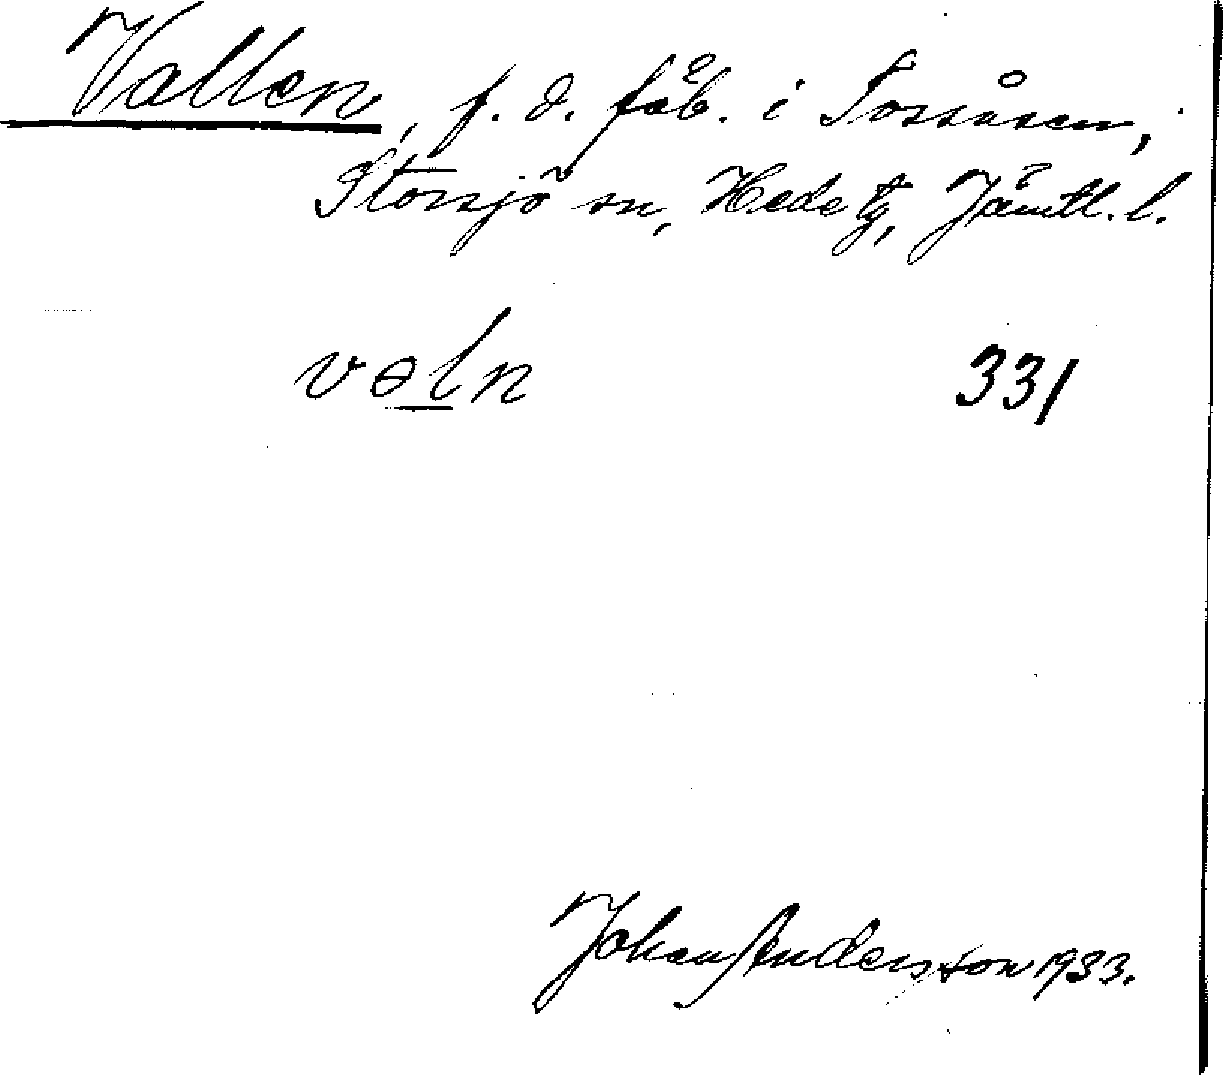 Vallen, f. d. fäb. i Tossåsen,
Storsjö sn, Hede tg, Jämtl. l.
vɵln 331
Johan Andersson 1933.